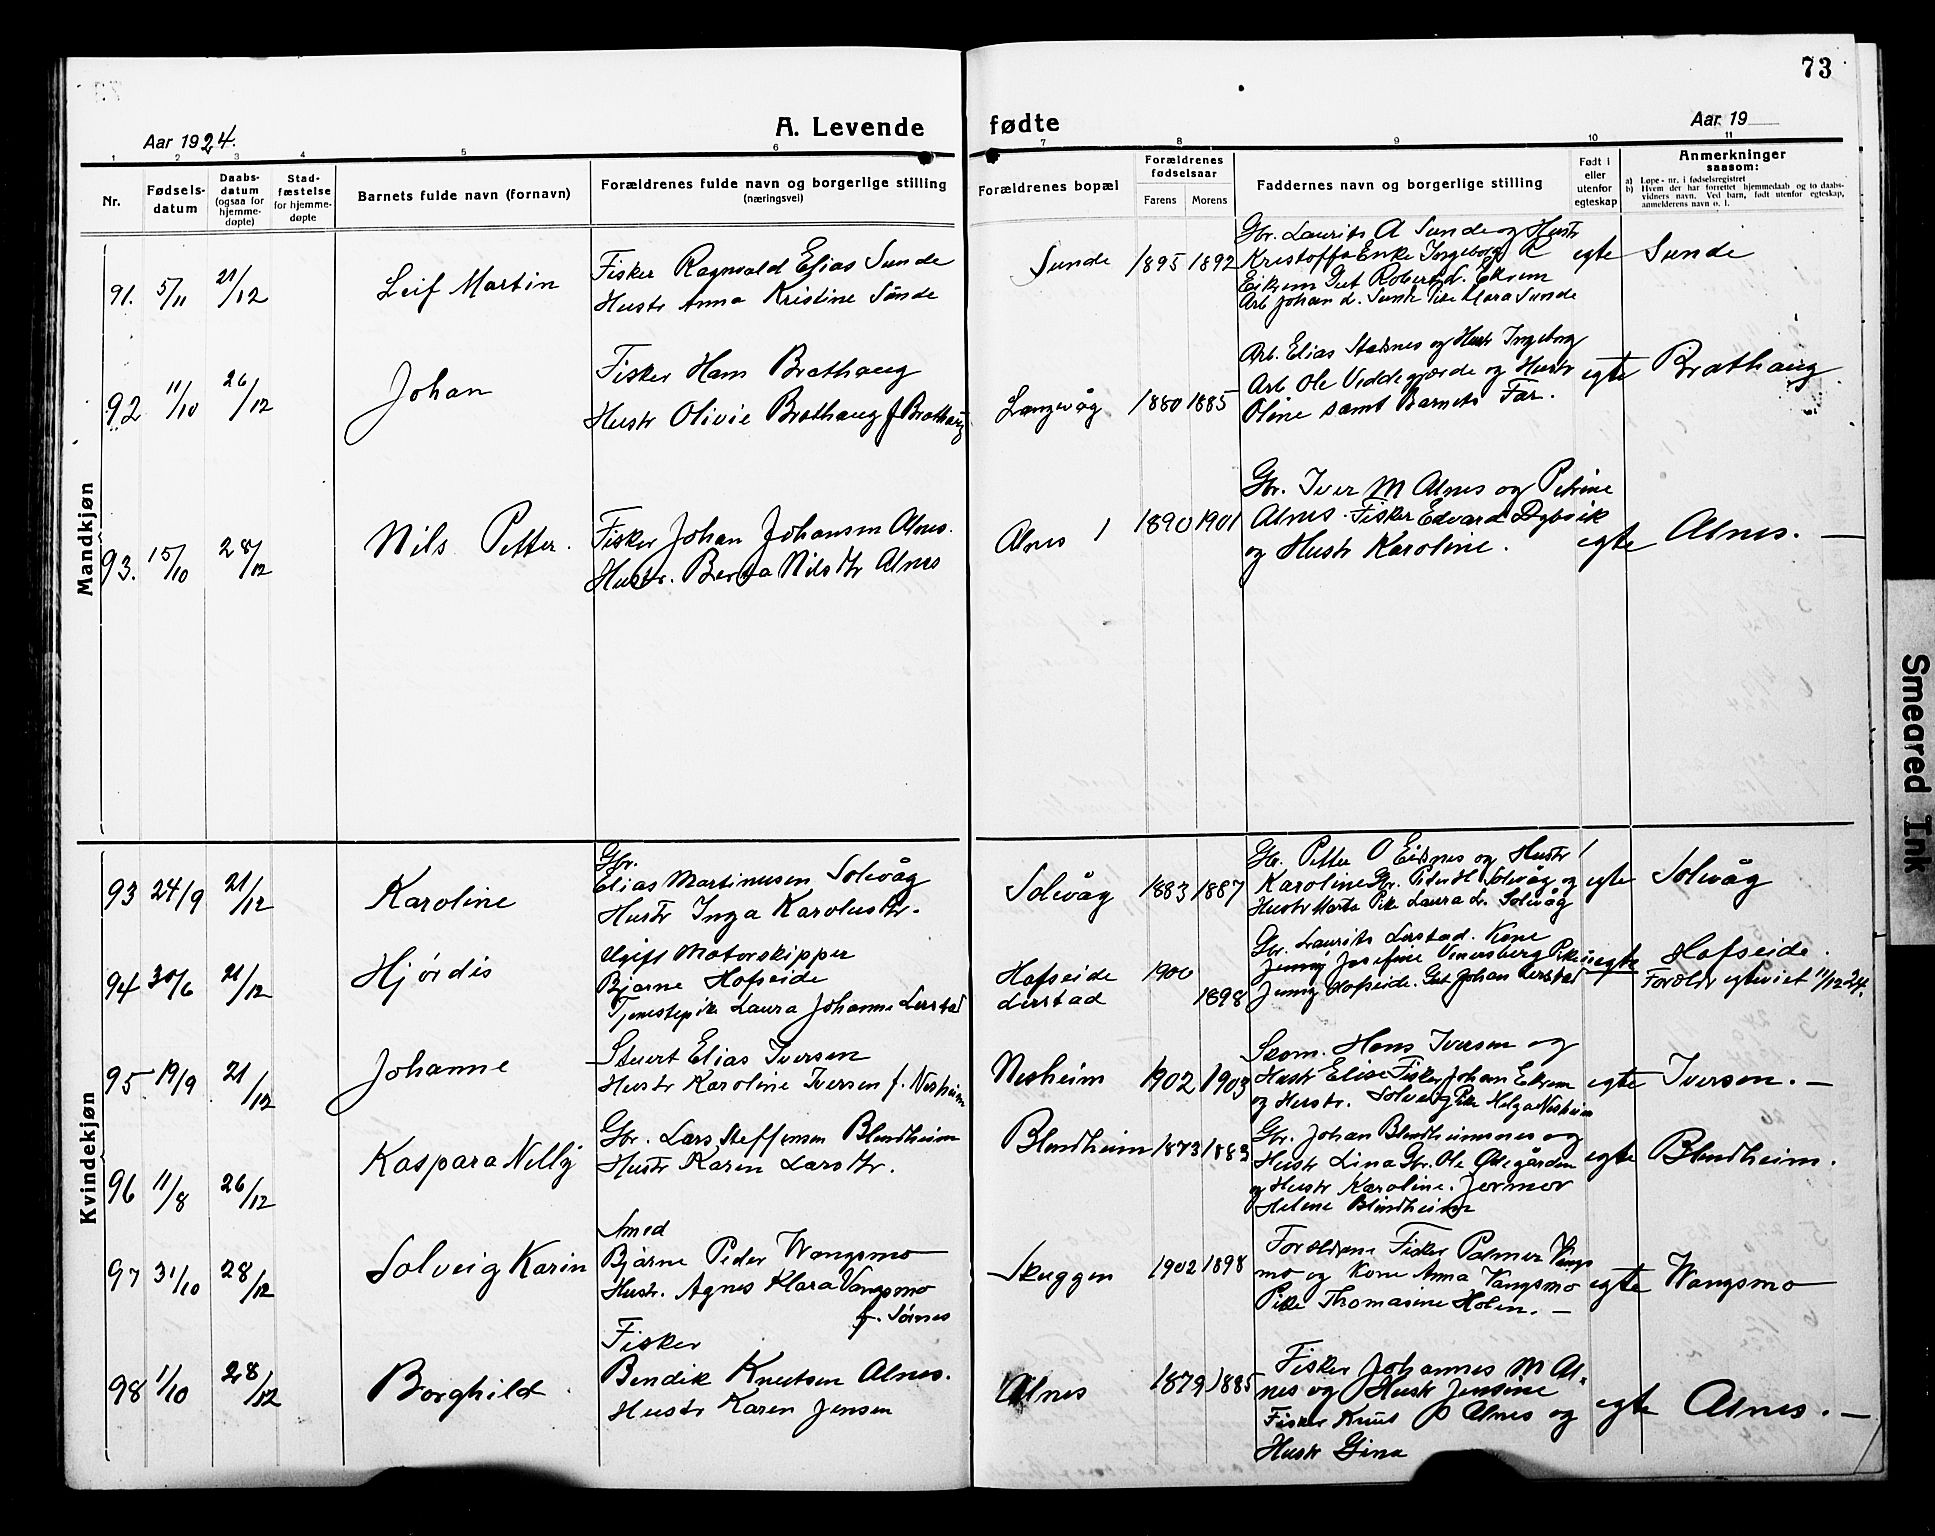 73
Aar 1924.
A. Levende fødte
Aar 19
1 2 3 4 5 6 7 8 9 10 11
Nr.
Fødsels-
datum
Daabs-
datum
(ogsaa for
hjemme-
døpte)
Stad-
fæstelse
for hjemme-
døpte
Barnets fulde navn (fornavn)
Forældrenes fulde navn og borgerlige stilling
(næringsvei)
Forældrenes bopæl
Forældrenes
fødselsaar
Farens Morens
Faddernes navn og borgerlige stilling
Født i
eller
utenfor
egteskap
Anmerkninger
saasom:
a) Løpe-nr. i fødselsregistret
b) Hvem der har forrettet hjemmedaab og to daabs-
vidners navn. Ved barn, født utenfor egteskap,
anmelderens navn o. l.
Mandkjøn
91. 5/11 21/12
Leif Martin
Fisker Ragnvald Elias Sunde
Hustr Anna Kristine Sunde
Sunde 1895 1892
Gbr. Laurits A Sunde og Hustr
Kristoffa Enke Ingeborg K
Eikrem Gut Robert d. Ekrem
Arb Johan d. Sunde Pike Mara Sunde
egte
Sunde
92 11/10 26/12
Johan
Fisker Hans Brathaug
Hustr Olivie Brathaug f Brathaug
Langevåg 1880 1885
Arb. Elias Staknes og Hustr Ingeborg
Arb Ole Veddegjærde og Hustr
Oline samt Barnets Far.
egte
Brathaug
93. 15/10 28/12
Nils Petter.
Fisker Johan Johansen Alnes.
Hustr. Berta Nilsdtr Alnes
Alnes 1890 1901
Gbr. Iver M Alnes og Petrine
Alnes. Fisker Edvard Dybvik
og Hustr Karoline.
egte
Alnes. —
Kvindekjøn
93 24/9 21/12
Karoline
Gbr.
Elias Martinusen Solevåg
Hustr Inga Karolusdtr.
Solevåg 1883 1887
Gbr. Petter O Eidsnes og Hustr
Karoline Gbr. Peder H. Solevåg og
Hustr Marta Pike Laura L. Solevåg
egte
Solevåg
94 30/6 21/12
Hjørdis
Ugift Motorskipper
Bjarne Hofseide
Tjenestepike Laura Johanne Lerstad
Hofseide
Lerstad
1900
1898
Gbr. Laurits Lerstad. Kone
Jenny Josefine Vinersberg Pike
Jenny Hofseide. Gut Johan Lerstad
uegte
Hofseide.
Foreldr egteviet 11/12 24.
95 19/9 21/12
Johanne
Stuert Elias Iversen
Hustr Karoline Iversen f. Nesheim
Nesheim 1902 1903
Skom. Hans Iversen og
Hustr Elise Fisker Johan Ekrem
og Hustr. Solveig Pike Helga Nesheim
egte
Iversen. —
96 11/8 26/12
Kaspara Nelly
Gbr. Lars Steffensen Blindheim
Hustr Karen Larsdtr.
Blindheim 1873 1883
Gbr. Johan Blindheimsnes og
Hustr Lina Gbr. Ole Ødegården
og Hustr Karoline. Jormor
Helene Blindheim
egte
Blindheim.
97 31/10 28/12
Solveig Karin
Smed
Bjarne Peder Wangsmo
Hustr. Agnes Klara Vangsmo
f. Sørnes
Skuggen 1902 1898
Foreldrene Fisker Palmer Vangs
mo og Kone Anna Vangsmo
Pike Thomasine Holen. —
egte
Wangsmo
98 1/10 28/12
Borghild.
Fisker
Bendik Knutsen Alnes.
Hustr Karen Jensen
Alnes 1879 1885
Fisker Johannes M Al-
nes og Hustr Jensine
Fisker Knut P Alnes og
Hustr Gina
egte
Alnes. —
Smeared Ink